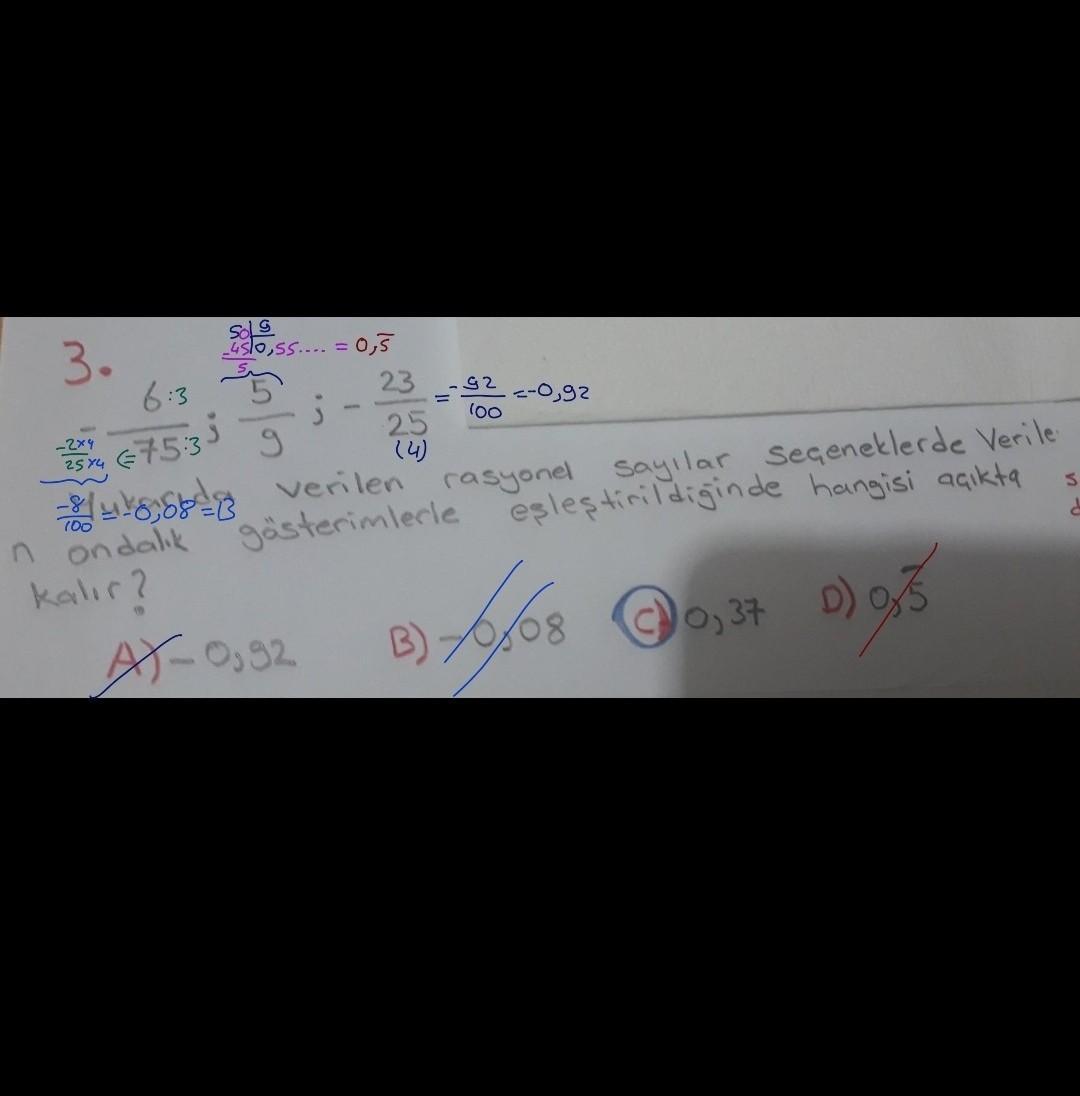 3.
50 9
-45 0,55.... = 0,5̅
5
- 6:3 / 75:3 ; 5/9 ; - 23/25 = -92/100 = -0,92
(4)
-2x4 / 25x4 ⇐
-8/100 = -0,08 = B
Yukarıda verilen rasyonel sayılar seçeneklerde verile
n ondalık gösterimlerle eşleştirildiğinde hangisi açıkta
kalır?
A) -0,92 B) -0,08 C) 0,37 D) 0,5̅